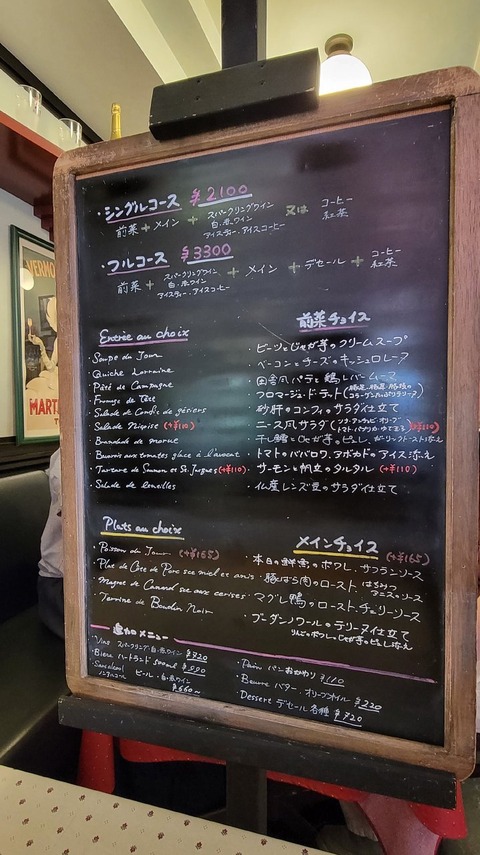 ・シングルコース ¥2100
前菜 + メイン + スパークリングワイン 白・赤ワイン アイスティー・アイスコーヒー 又は コーヒー 紅茶
・フルコース ¥3300
前菜 + スパークリングワイン 白・赤ワイン アイスティー・アイスコーヒー + メイン + デセール + コーヒー 紅茶
Entrée au choix
・Soupe du Jour
・Quiche Lorraine
・Pâté de Campagne
・Fromage de Tête
・Salade de Confit de gésiers
・Salade Niçoise (+¥110)
・Brandade de morue
・Bavarois aux tomates glace à l'avocat
・Tartare de Saumon et St. Jacques (+¥110)
・Salade de lentilles
前菜チョイス
・ビーツとじゃが芋のクリームスープ
・ベーコンとチーズのキッシュロレーヌ
・田舎風パテと鶏レバームース
・フロマージュ・ド・テート
・砂肝のコンフィのサラダ仕立て
・ニース風サラダ (ツナ・アンチョビ・オリーブ トマト・パプリカ・ゆで玉子) (+¥110)
・干し鱈とじゃが芋のピュレ、ガーリックトースト添え
・トマトのババロワ、アボカドのアイス添え
・サーモンと帆立のタルタル (+¥110)
・仏産レンズ豆のサラダ仕立て
Plats au choix
・Poisson du Jour (+¥165)
・Plat de Côte de Porc au miel et anis
・Magret de Canard aux cerises
・Terrine de Boudin Noir
メインチョイス
・本日の鮮魚のポワレ、サフランソース (+¥165)
・豚ばら肉のロースト はちみつ アニスのソース
・マグレ鴨のローストチェリーソース
・ブーダンノワールのテリーヌ仕立て
りんごのポワレ、じゃが芋のピュレ添え
追加メニュー
・Vins スパークリング・白・赤ワイン ¥820
・Bière ハートランド 500ml
・Sans alcool ノンアルコール ビール・白・赤ワイン ¥660~
・Pain パン おかわり ¥110
・Beurre バター、オリーブオイル ¥220
・Dessert デセール各種 ¥720
VERMO
MART